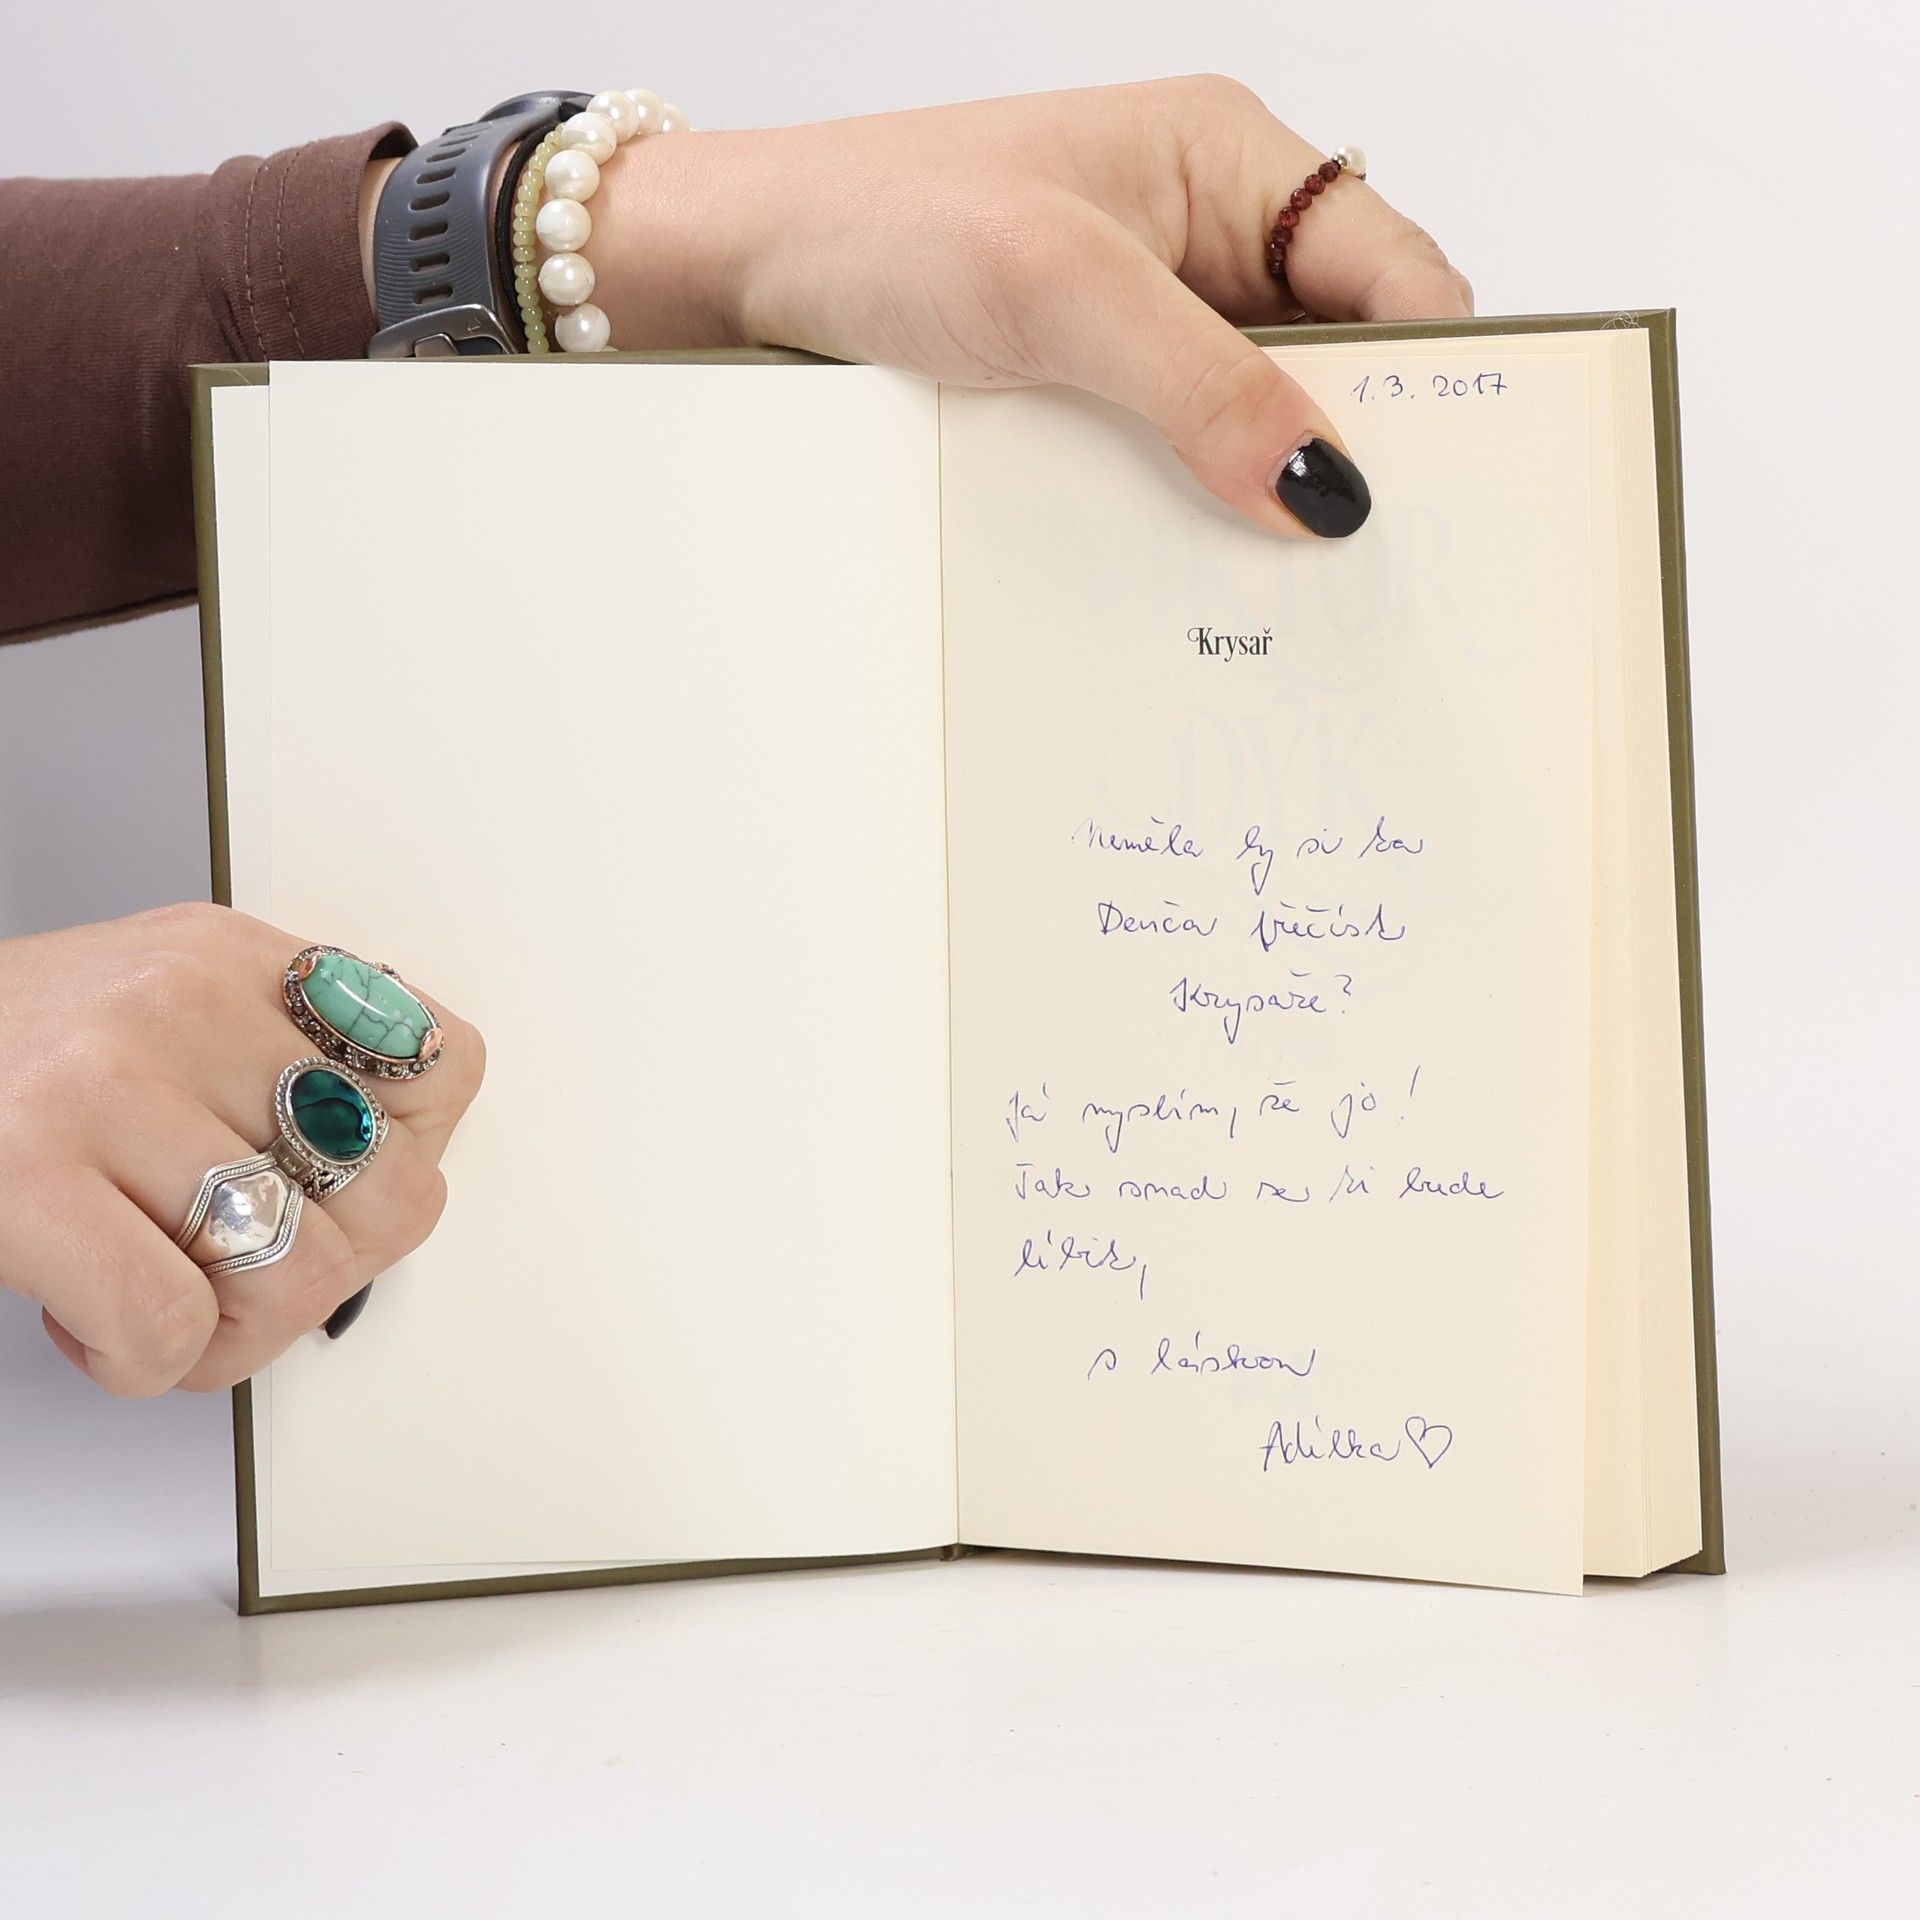 1.3. 2017
Krysař
Neměla by si ta
Denča přečíst
Krysaře?
Já myslím, že jo!
Tak snad se ti bude
líbit,
s láskou
Adélka ♡